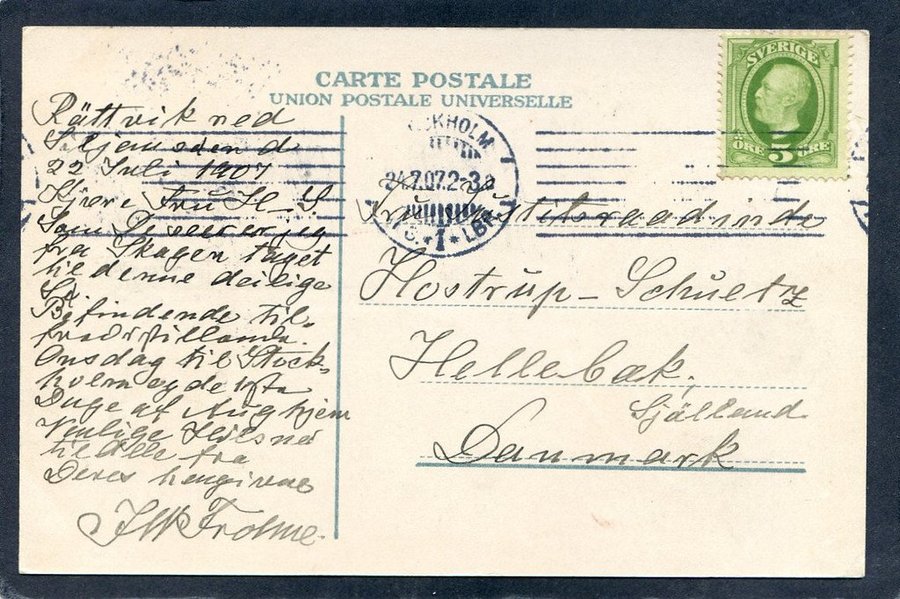 CARTE POSTALE
UNION POSTALE UNIVERSELLE
SVERIGE
ÖRE 5 ÖRE
STOCKHOLM
24.7.07.2-3
1 LBR
Rättvik ved
Siljansöen d.
22 Juli 1907
Kjære Fru H-S.
Som De seer er jeg
fra Skagen taget
til denne deilige
Befindende til-
fredsstillende.
Onsdag til Stock-
holm og de
Dage af Aug hjem
Venlige Hilsner
til alle fra
Deres hengivne
Fru Justitsraadinde
Hostrup-Schultz
Hellebæk.
Sjælland
Danmark